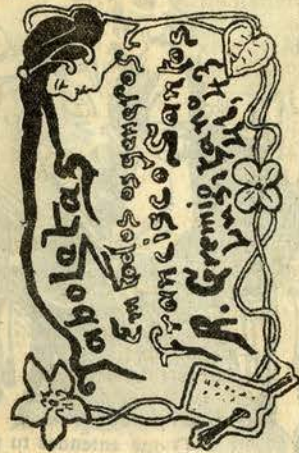 Taboletas
Em todos os generos
Francisco Santos
R. Gremio
Lusitano